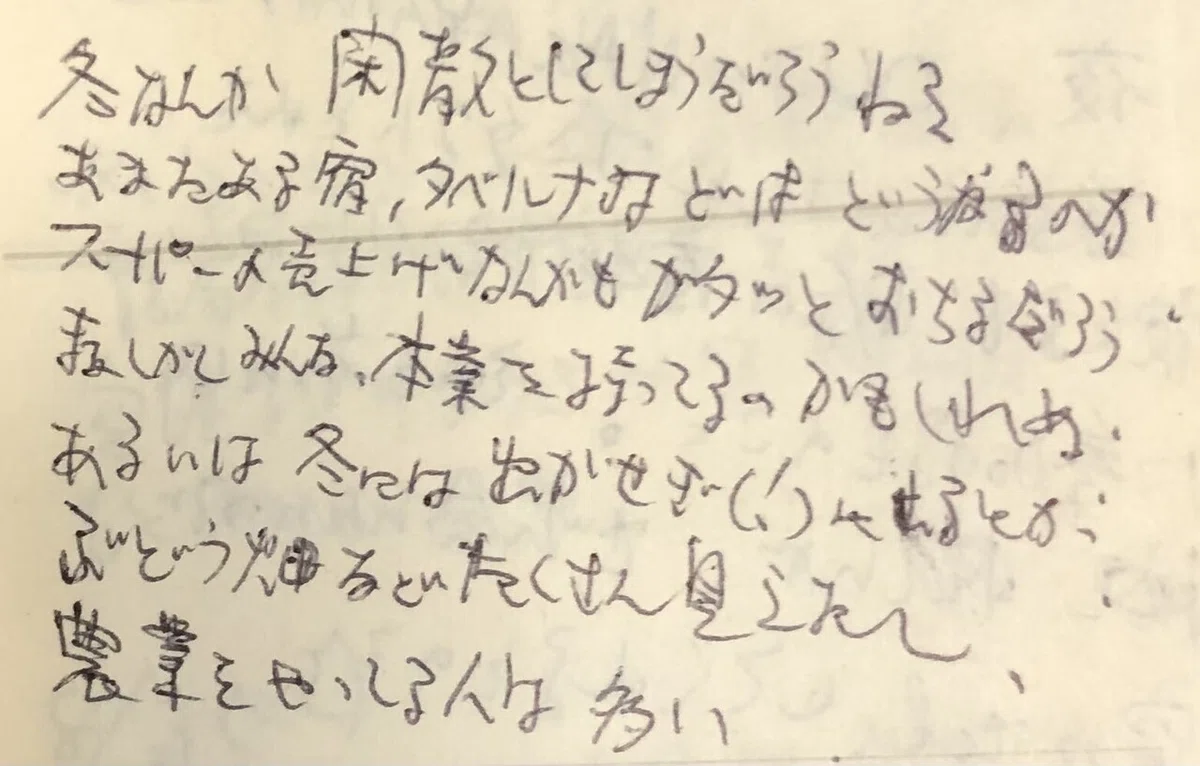 冬なんか 閑散としてしまうだろうねえ
あまたある宿、タベルナなどはどうするのか
スーパーの売上げなんかもガタッとおちるだろう。
しかしみんな、本業を持ってるのかもしれぬ。
あるいは冬には出かせぎ(!)に出るとか、
ぶどう畑などたくさん見えたし、
農業をやってる人は多い